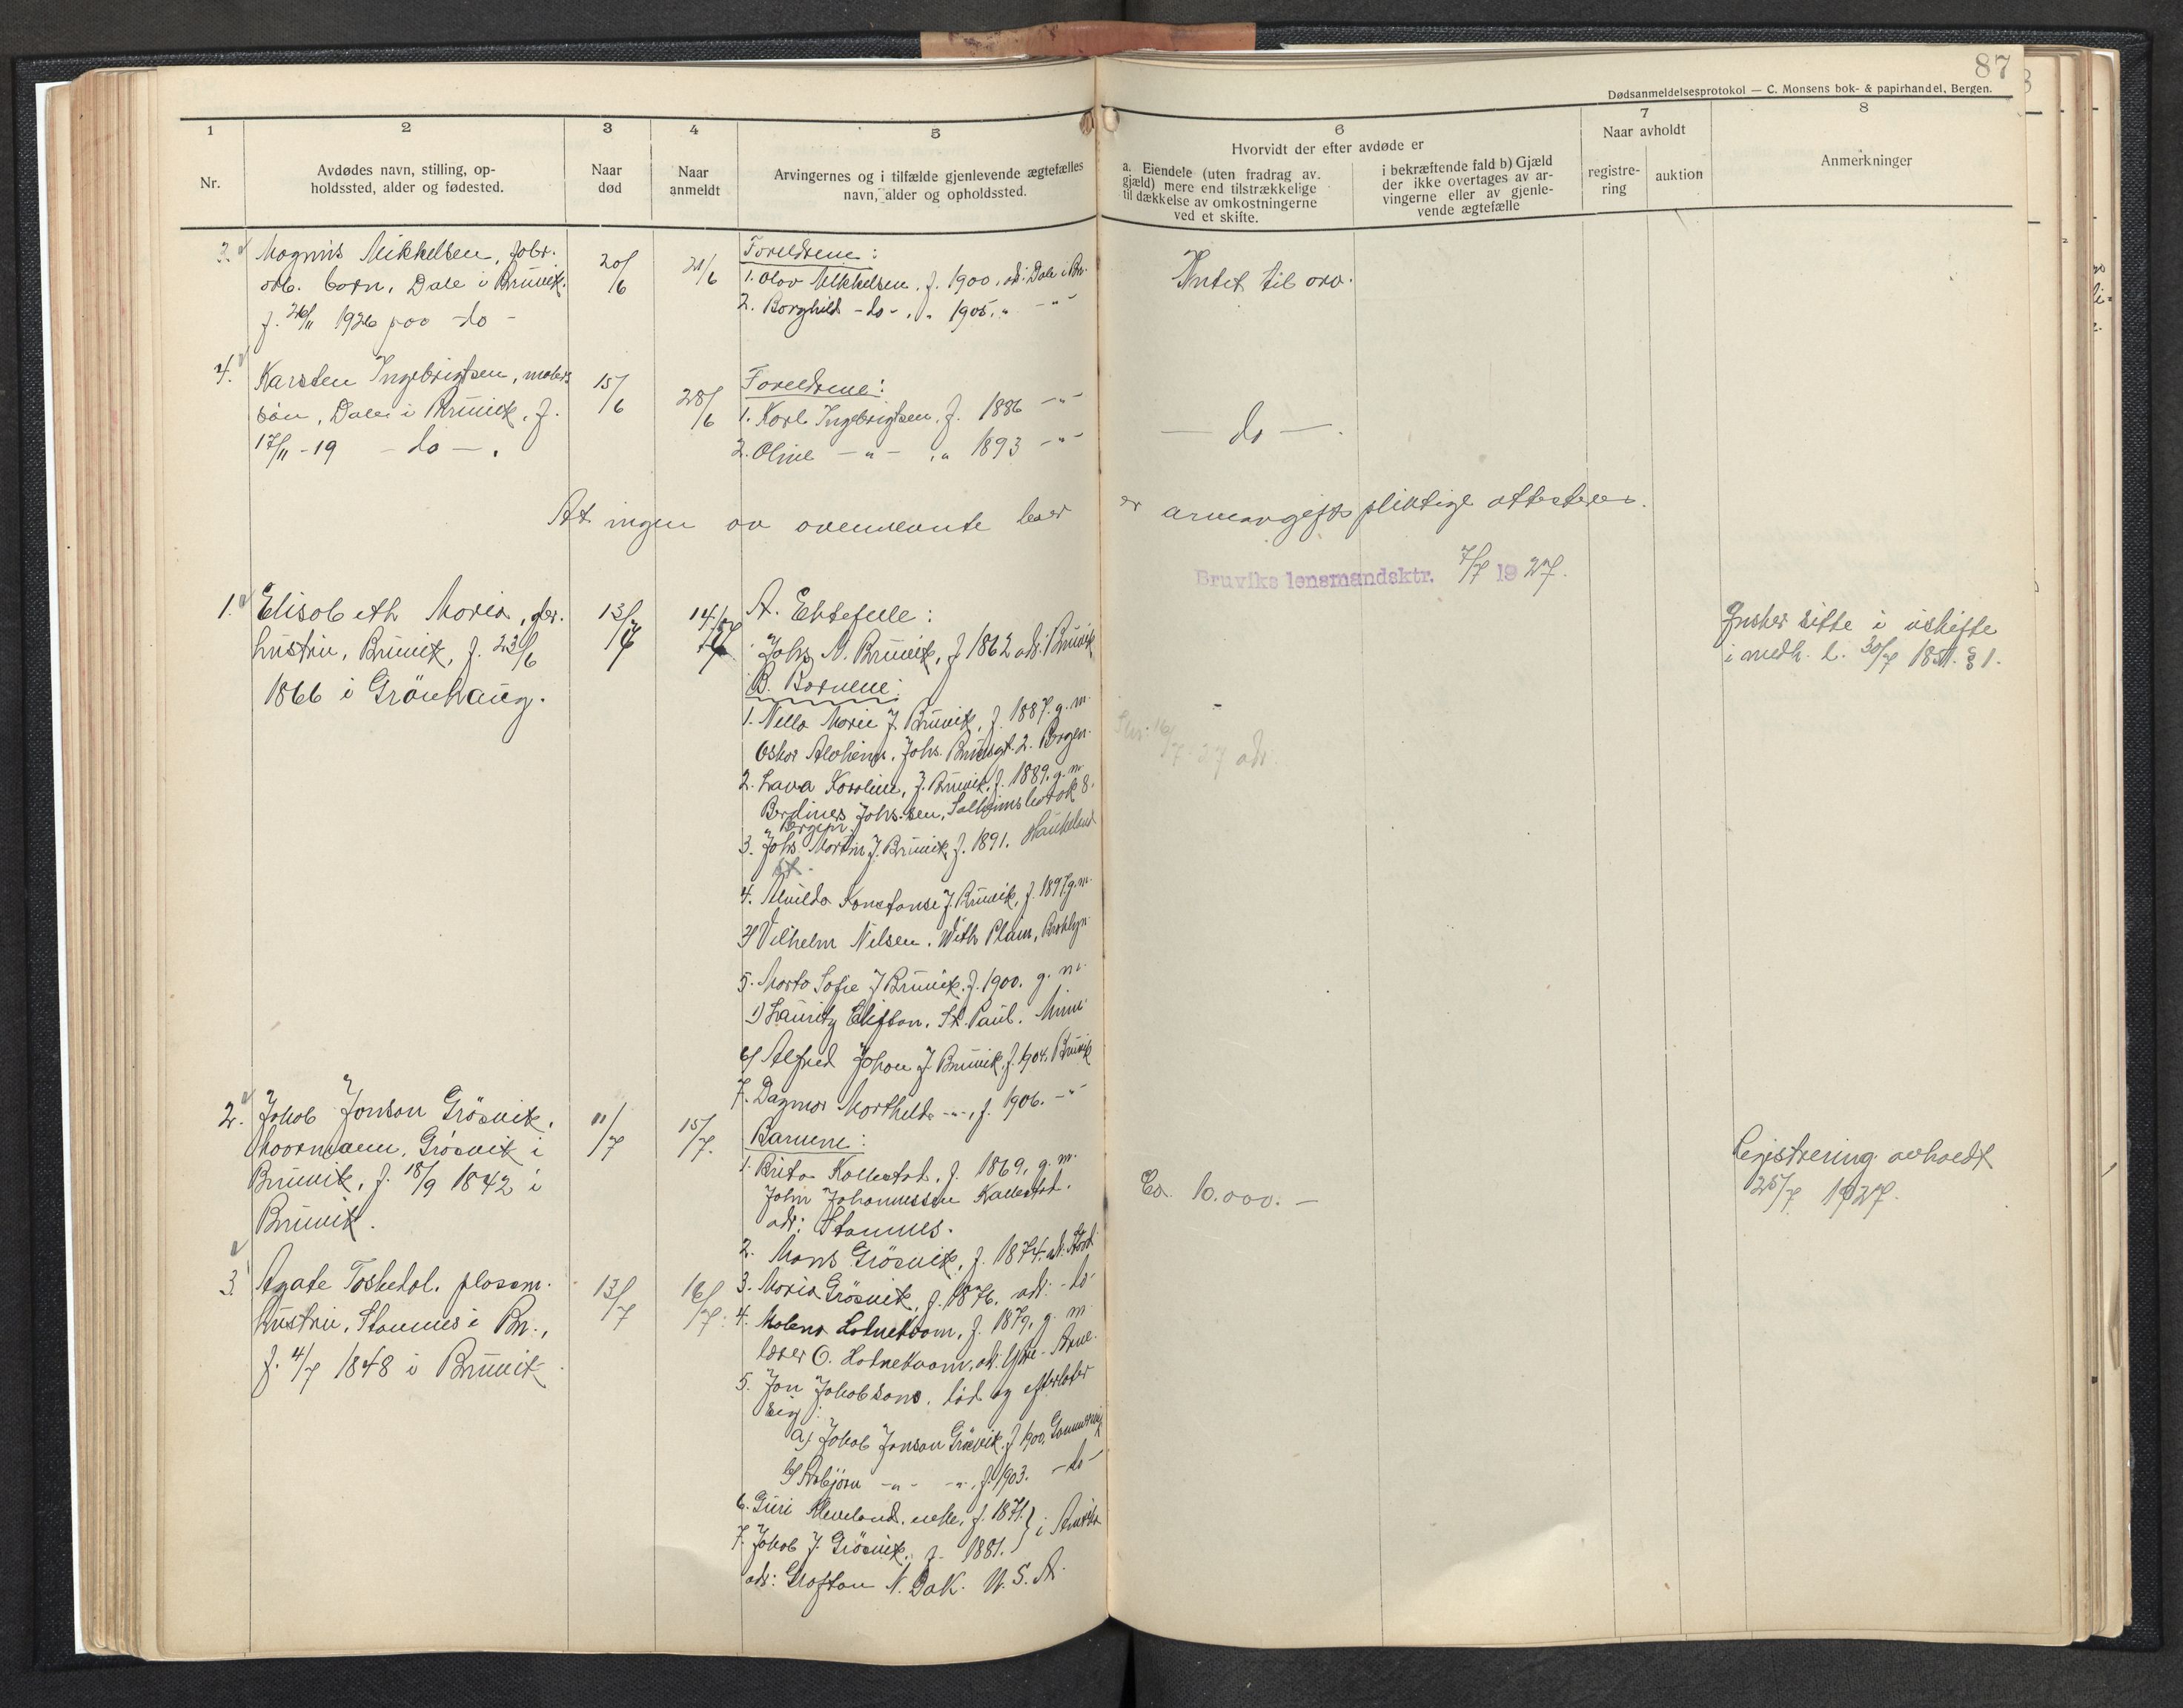 87
Dødsanmeldelsesprotokol — C. Monsens bok- & papirhandel, Bergen.
1 2 3 4 5 6 7 8
Nr.
Avdødes navn, stilling, op-
holdssted, alder og fødested.
Naar
død
Naar
anmeldt
Arvingernes og i tilfælde gjenlevende ægtefælles
navn, alder og opholdssted.
Hvorvidt der efter avdøde er
a. Eiendele (uten fradrag av.
gjæld) mere end tilstrækkelige
til dækkelse av omkostningerne
ved et skifte.
i bekræftende fald b) Gjæld
der ikke overtages av ar-
vingerne eller av gjenle-
vende ægtefælle
Naar avholdt
registre-
ring
auktion
Anmerkninger
3. Magnus Mikkelsen, fabr.
arb. barn, Dale i Bruvik.
f. 26/11 1926 paa -do-
20/6
21/6
Foreldrene:
1. Olav Mikkelsen, f. 1900, adr: Dale i Br.
2. Borghild -do-, " 1905, " -"-
Intet til arv.
4. Karsten Ingebrigtsen, malers
søn, Dale i Bruvik, f.
17/11-19 -do-.
15/6
28/6
Foreldrene:
1. Karl Ingebrigtsen, f. 1886 -"-
2. Oline -"- , " 1893 -"-
- do -.
At ingen av ovennevnte
er arveavgiftspliktige attesteres.
Bruviks lensmandsktr. 7/7 1927.
1. Elisabeth Maria,
hustru, Bruvik, f. 23/6
1866 i Grønhaug.
13/7
14/7
A. Ektefelle:
Johs. N. Bruvik, f. 1862 adr: Bruvik
B. Barnene:
1. Nella Marie J. Bruvik, f. 1887. g. m.
Oskar Alvheim, Johs. Brunsgt. 2. Bergen.
2. Lava Karoline, J. Bruvik, f. 1889. g. m.
Berdines Johs.sen, 8.
Bergen.
3. Johs. Martin J. Bruvik, f. 1891. Haukeland
st.
4. Alvilda Konstanse J. Bruvik, f. 1897. g. m.
Vilhelm Nilsen. With Plain, Brooklyn
5. Marta Sofie J Bruvik. f. 1900. g. m.
Lauritz Elifson. St. Paul. Minn
6) Alfred Johan J. Bruvik, f. 1904. Bruvik
7. Dagmar Marthild. -"-, f. 1906. -"-
Skr. 16/7-27 adr.
Ønsker sitte i uskifte
i medh. l. 30/7 1851. § 1.
2. Jakob Jonson Grøsvik,
kaarmann, Grøsvik i
Bruvik, f. 18/9 1842 i
Bruvik.
11/7
15/7.
Barnene:
1. Brita Kallestad, f. 1869, g. m.
John Johannessen Kallestad.
adr: Stamnes.
2. Mons Grøsvik, f. 1874. adr.
3. Maria Grøsvik, f. 1876. adr: -do-
4. Malena f. 1879, g. m.
lærer O.
5. Jon Jakobsons. død og efterlater
sig:
a) Jakob Jonson Grøsvik. f 1900.
b) Asbjørn -"- -"-, f. 1903. -do-
6. Guri enke, f. 1871. } i Amerika
7. Jakob J. Grøsvik, f. 1881.
adr: Grafton N. Dak. U.S.A.
Ca. 10.000.-
Registrering avholdt
25/7 1927.
3. Agate Toskedal, plassm.
hustru, Stamnes i Br.,
f. 4/7 1848 i Bruvik
13/7
16/7.